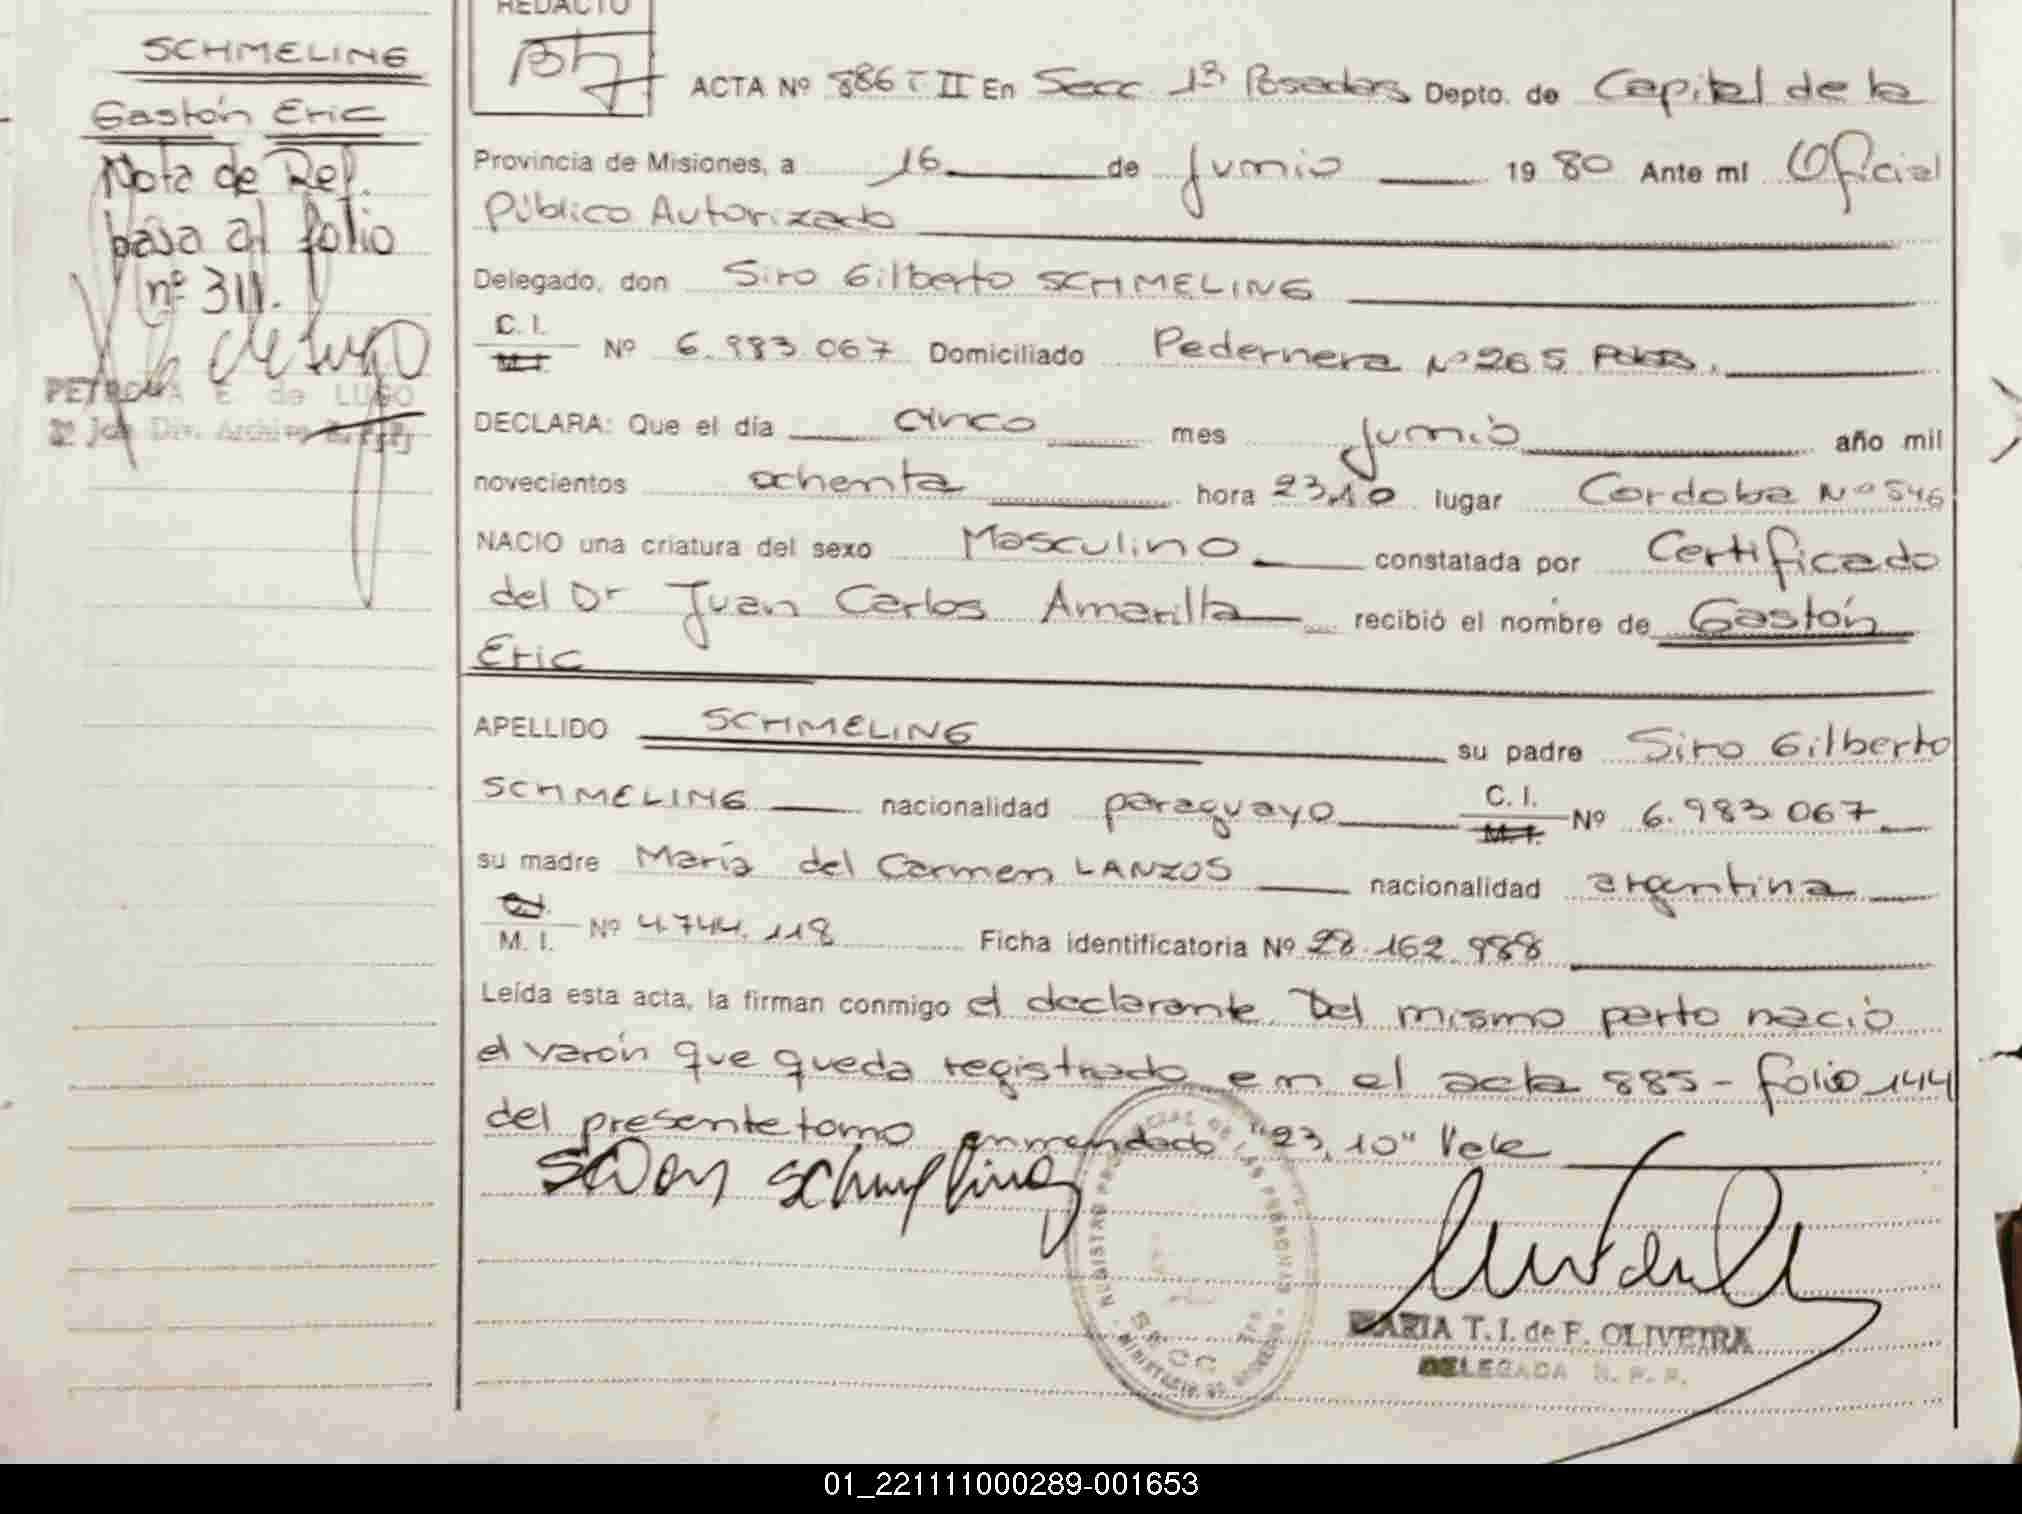 SCHMELING
Gastón Eric
Nota de Ref.
pasa al folio
nº 311.
PETRONA E de LUGO
2º Jefe Div. Archivo R.P.P.
REDACTO
ACTA Nº 886 T II En Secc 1ª Posadas Depto. de Capital de la
Provincia de Misiones, a 16 de Junio 19 80 Ante mí Oficial
Público Autorizado
Delegado, don Siro Gilberto SCHMELING
C. I.
M. I. Nº 6.983.067 Domiciliado Pedernera Nº 265 Pdas.
DECLARA: Que el día cinco mes Junio año mil
novecientos ochenta hora 23,10 lugar Cordoba Nº 546
NACIO una criatura del sexo Masculino constatada por Certificado
del Dr Juan Carlos Amarilla recibió el nombre de Gastón
Eric
APELLIDO SCHMELING su padre Siro Gilberto
SCHMELING nacionalidad paraguayo C. I. M. I. Nº 6.983.067
su madre María del Carmen LANZOS nacionalidad argentina
M. I. Nº 4.744.118 Ficha identificatoria Nº 28.162.988
Leída esta acta, la firman conmigo el declarante. Del mismo parto nació
el varón que queda registrado en el acta 885 - folio 144
del presente tomo enmendado "23,10" Vale
MARIA T. I. de F. OLIVEIRA
DELEGADA R. P. P.
01_221111000289-001653